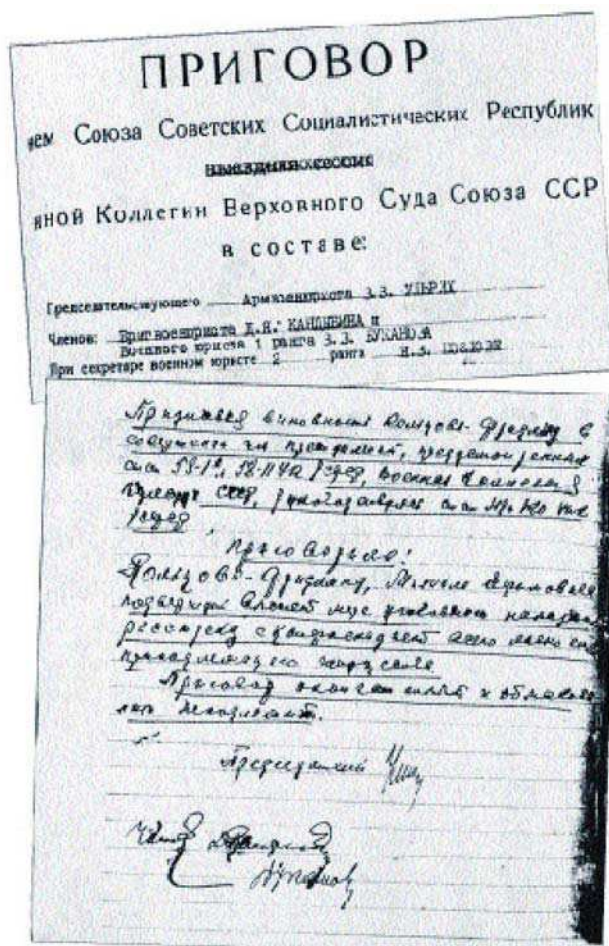 ПРИГОВОР
нем Союза Советских Социалистических Республик
выездная сессия
нной Коллегии Верховного Суда Союза ССР
в составе:
Председательствующего Армвоенюриста В. В. УЛЬРИХ
Членов: Бригвоенюриста Д.Я. КАНДЫБИНА и
Военного юриста 1 ранга БУКАНОВА
При секретаре военном юристе 2 ранга Н.В. КОЗЛОВЕ
Признавая виновность Кольцова-Фридлянд в
совершении преступлений, предусмотренных
ст.ст. УК РСФСР, Военная Коллегия
СССР, руководствуясь ст.ст. 319 и 320 УПК
РСФСР
Приговорила:
Кольцова-Фридлянд, Михаила Ефимовича
подвергнуть высшей мере уголовного наказания
расстрелу с конфискацией всего лично ему
принадлежащего имущества.
Приговор окончательный и обжалова-
нию не подлежит.
Председательств
Члены